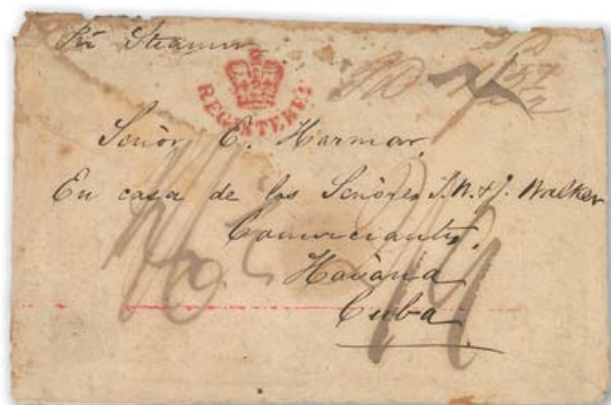 Per Steamer
REGISTERED
Señor E. Harmar
En casa de los Señores J. W. & J. Walker
Comerciantes,
Havana
Cuba